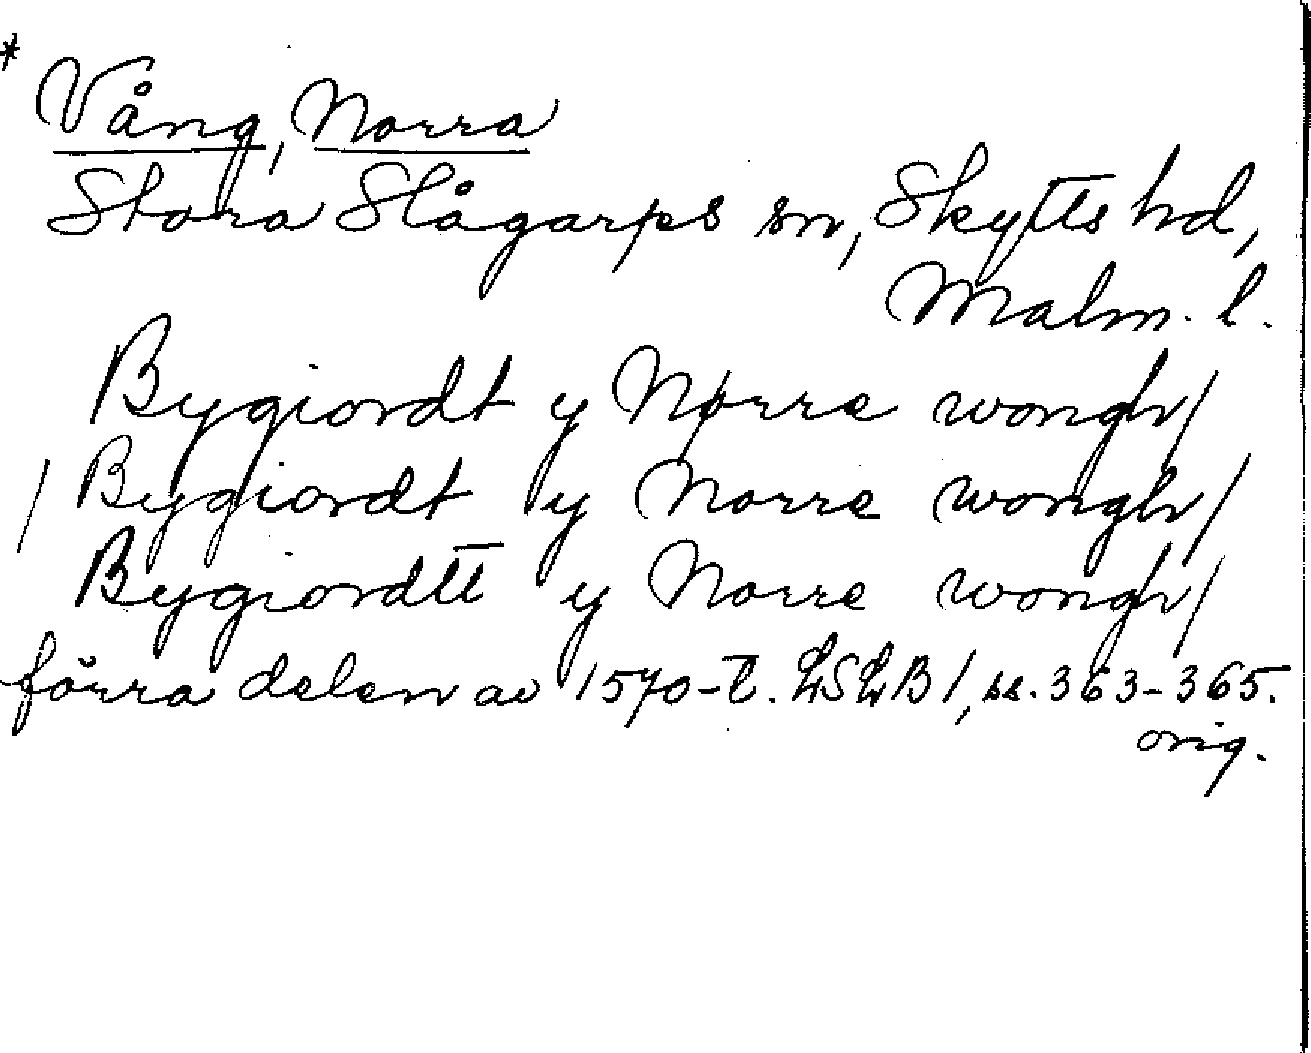 * Vång, Norra
Stora Slågarps sn, Skytts hd,
Malm. l.
Bygiordt y Nørre wongh/
/ Bygiordt y Norre wongh/
Bygiordtt y Norre wongh/
förra delen av 1570-t. LSLB1, ss. 363-365.
orig.